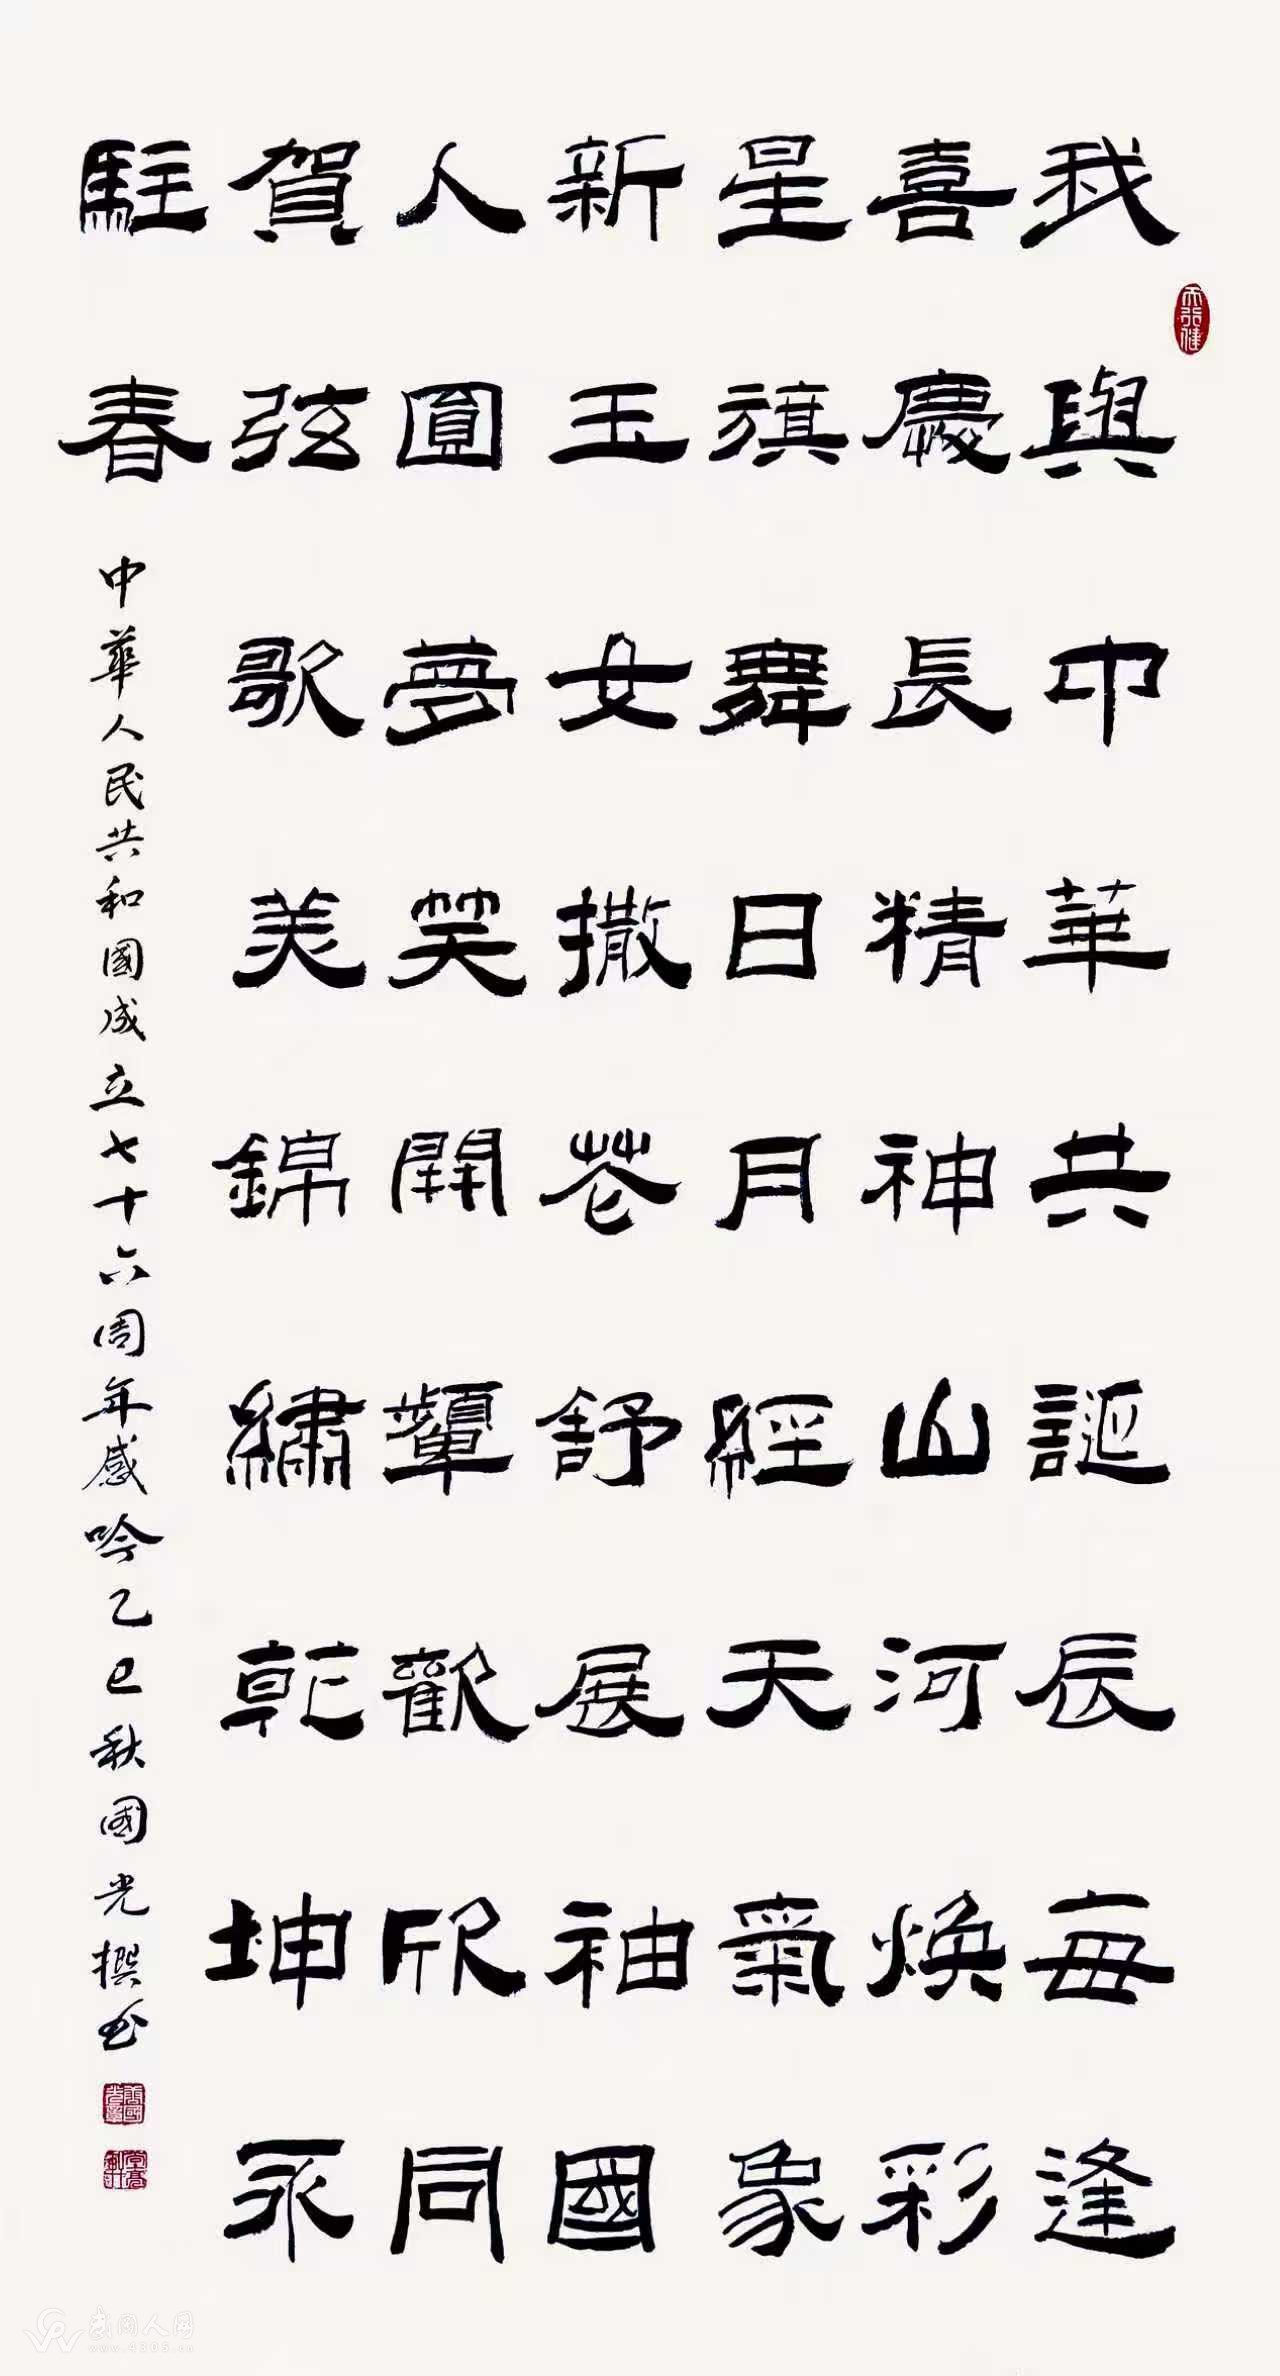 我與中華共誕辰每逢
喜慶長精神山河煥彩
星旗舞日月經天氣象
新玉女撒花舒展袖國
人圓夢笑開顰歡欣同
賀弦歌美錦繡乾坤永
駐春
中華人民共和國成立七十六周年感吟乙巳秋國光撰书
天行健